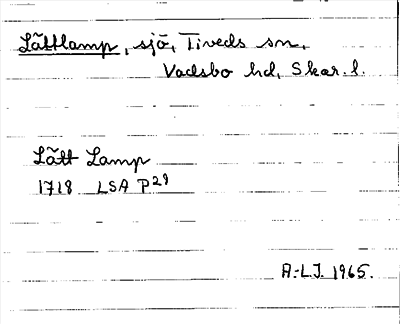 Lättlamp, sjö, Tiveds sn,
Vadsbo hd, Skar. l.
Lätt Lamp
1718 LSA P29
A:LJ. 1965.